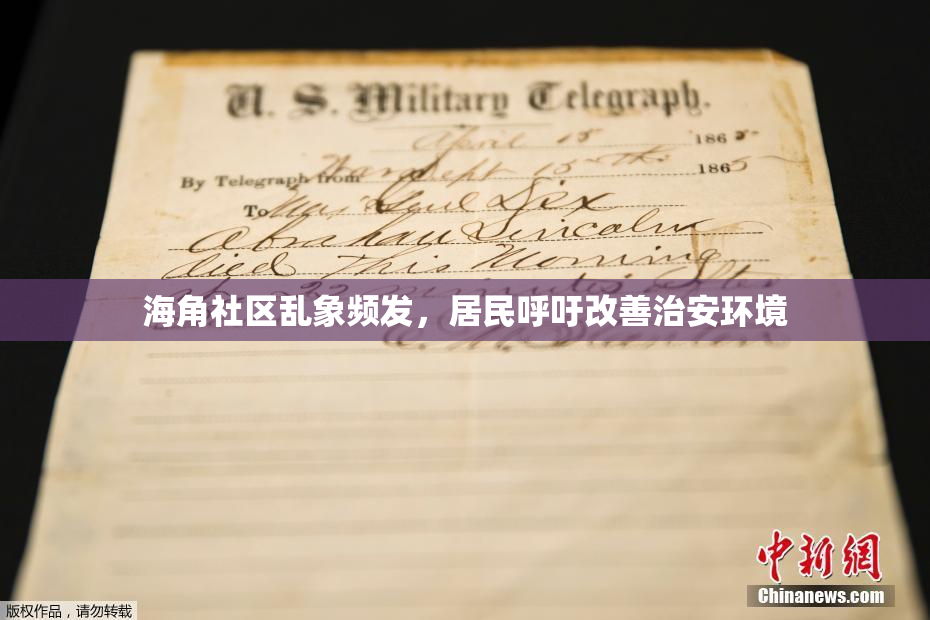 U. S. Military Telegraph.
April 15 1865
By Telegraph from War Dept 15th 1865
To Maj Genl Dix
Abraham Lincoln
died This Morning
at 22 minutes after
海角社区乱象频发，居民呼吁改善治安环境
E. M. Stanton
中新網
Chinanews.com
版权作品，请勿转载